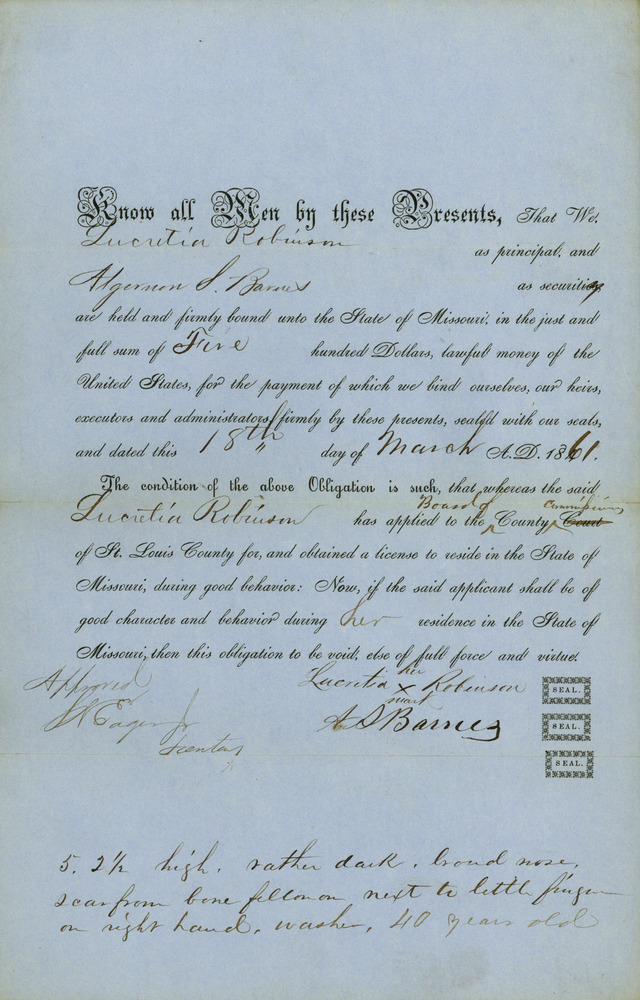 Know all Men by these Presents, That We,
Lucretia Robinson
as principal, and
Algernon S. Barnes as security
are held and firmly bound unto the State of Missouri, in the just and
full sum of Five hundred Dollars, lawful money of the
United States, for the payment of which we bind ourselves, our heirs,
executors and administrators, firmly by these presents, sealed with our seals,
and dated this 18th day of March A.D. 1861.
The condition of the above Obligation is such, that whereas the said
Board of Commissioners
Lucretia Robinson has applied to the County Court
of St. Louis County for, and obtained a license to reside in the State of
Missouri, during good behavior: Now, if the said applicant shall be of
good character and behavior during her residence in the State of
Missouri, then this obligation to be void, else of full force and virtue.
Approved
her
Lucretia X Robinson SEAL.
mark
A S Barnes SEAL.
SEAL.
5. 2½ high, rather dark, broad nose,
scar from bone fellon on next to little finger
on right hand, washer, 40 years old